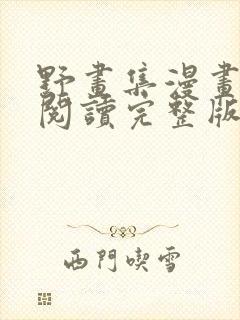 野畫集漫畫
閱讀完整版
西門喫雪